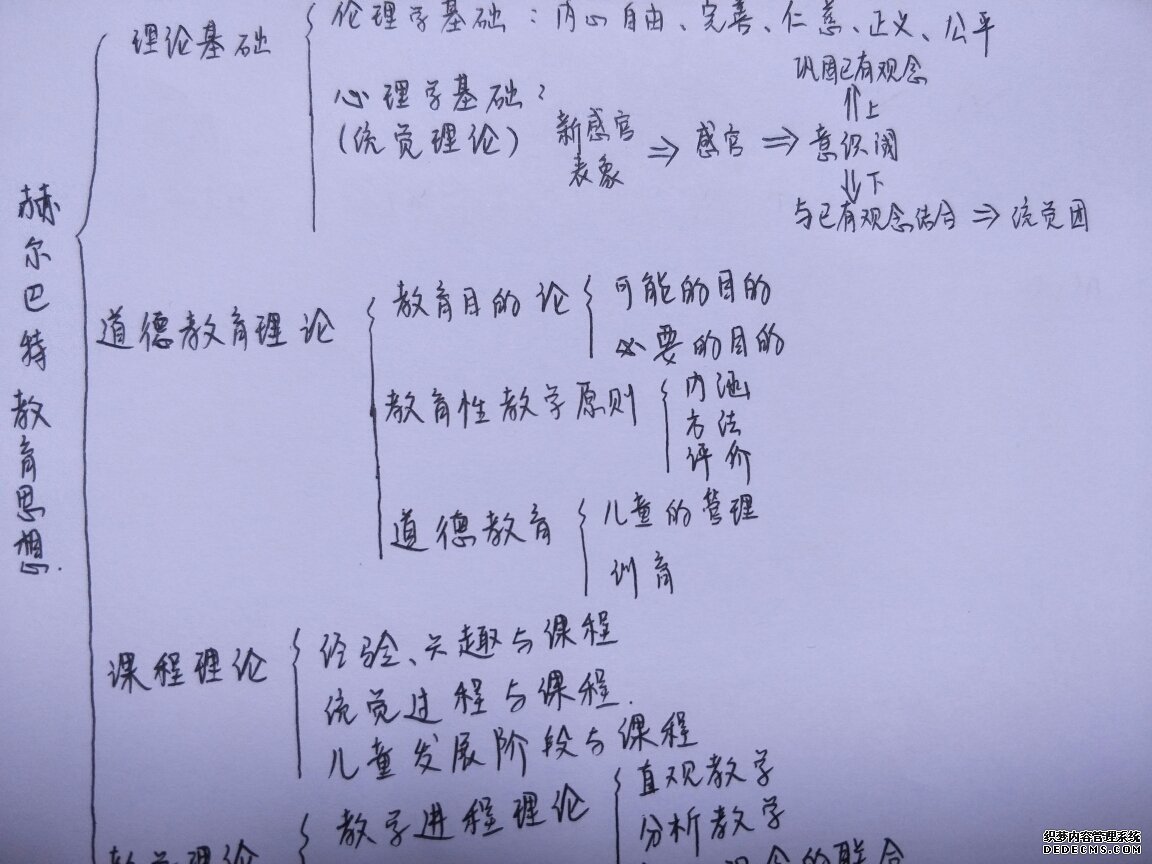 赫尔巴特教育思想.
理论基础
伦理学基础：内心自由、完善、仁慈、正义、公平
心理学基础：
(统觉理论)
新感官
表象
⇒ 感官 ⇒ 意识阈
⇑上
巩固已有观念
⇓下
与已有观念结合 ⇒ 统觉团
道德教育理论
教育目的论
可能的目的
必要的目的
教育性教学原则
内涵
方法
评价
道德教育
儿童的管理
训育
课程理论
经验、兴趣与课程
统觉过程与课程.
儿童发展阶段与课程
教学理论
教学进程理论
直观教学
分析教学
的联合
织梦内容管理系统
DEDECMS.COM